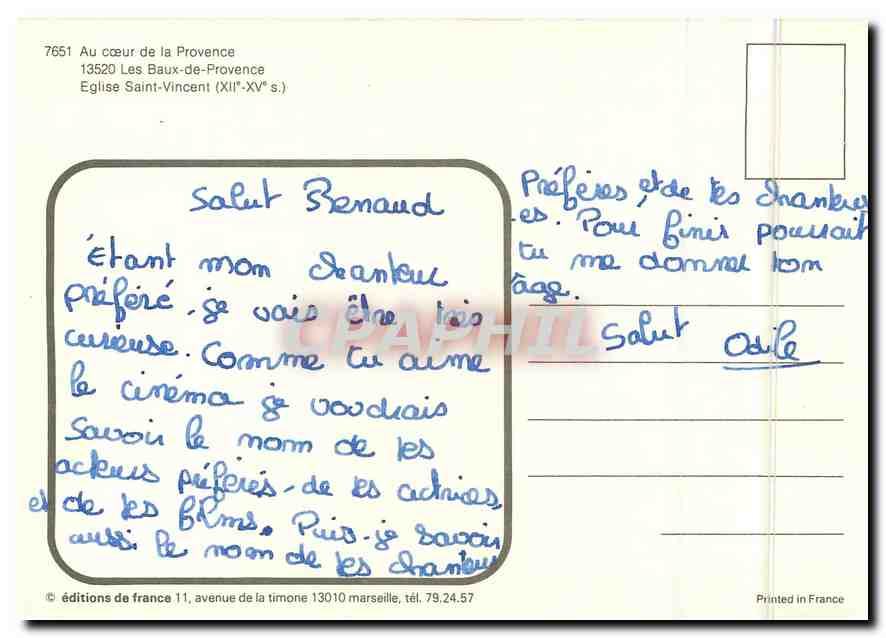 7651 Au cœur de la Provence
13520 Les Baux-de-Provence
Eglise Saint-Vincent (XIIe-XVe s.)
Salut Renaud
Étant mon chanteur
préféré, je vais être très
curieuse. Comme tu aime
le cinéma je voudrais
savoir le nom de tes
acteurs préférés, de tes actrices,
et de tes films. Puis-je savoir
aussi le nom de tes chanteurs
préfères, et de tes chanteus
es. Pour finir pourrait
tu me donner ton
âge.
Salut Odile
CPAPHIL
© éditions de france 11, avenue de la timone 13010 marseille, tél. 79.24.57
Printed in France